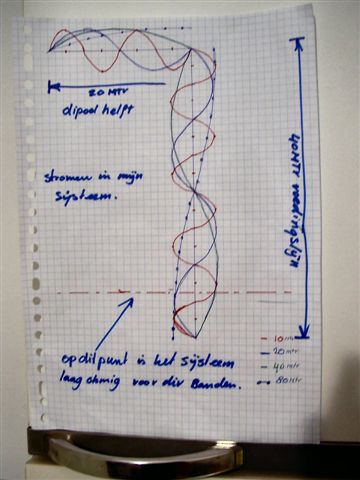 20 MTR
dipool helft
stromen in mijn
systeem.
40 MTR voedingslijn
op dit punt is het systeem
laag ohmig voor div Banden.
10 mtr
20 mtr
40 mtr
80 mtr